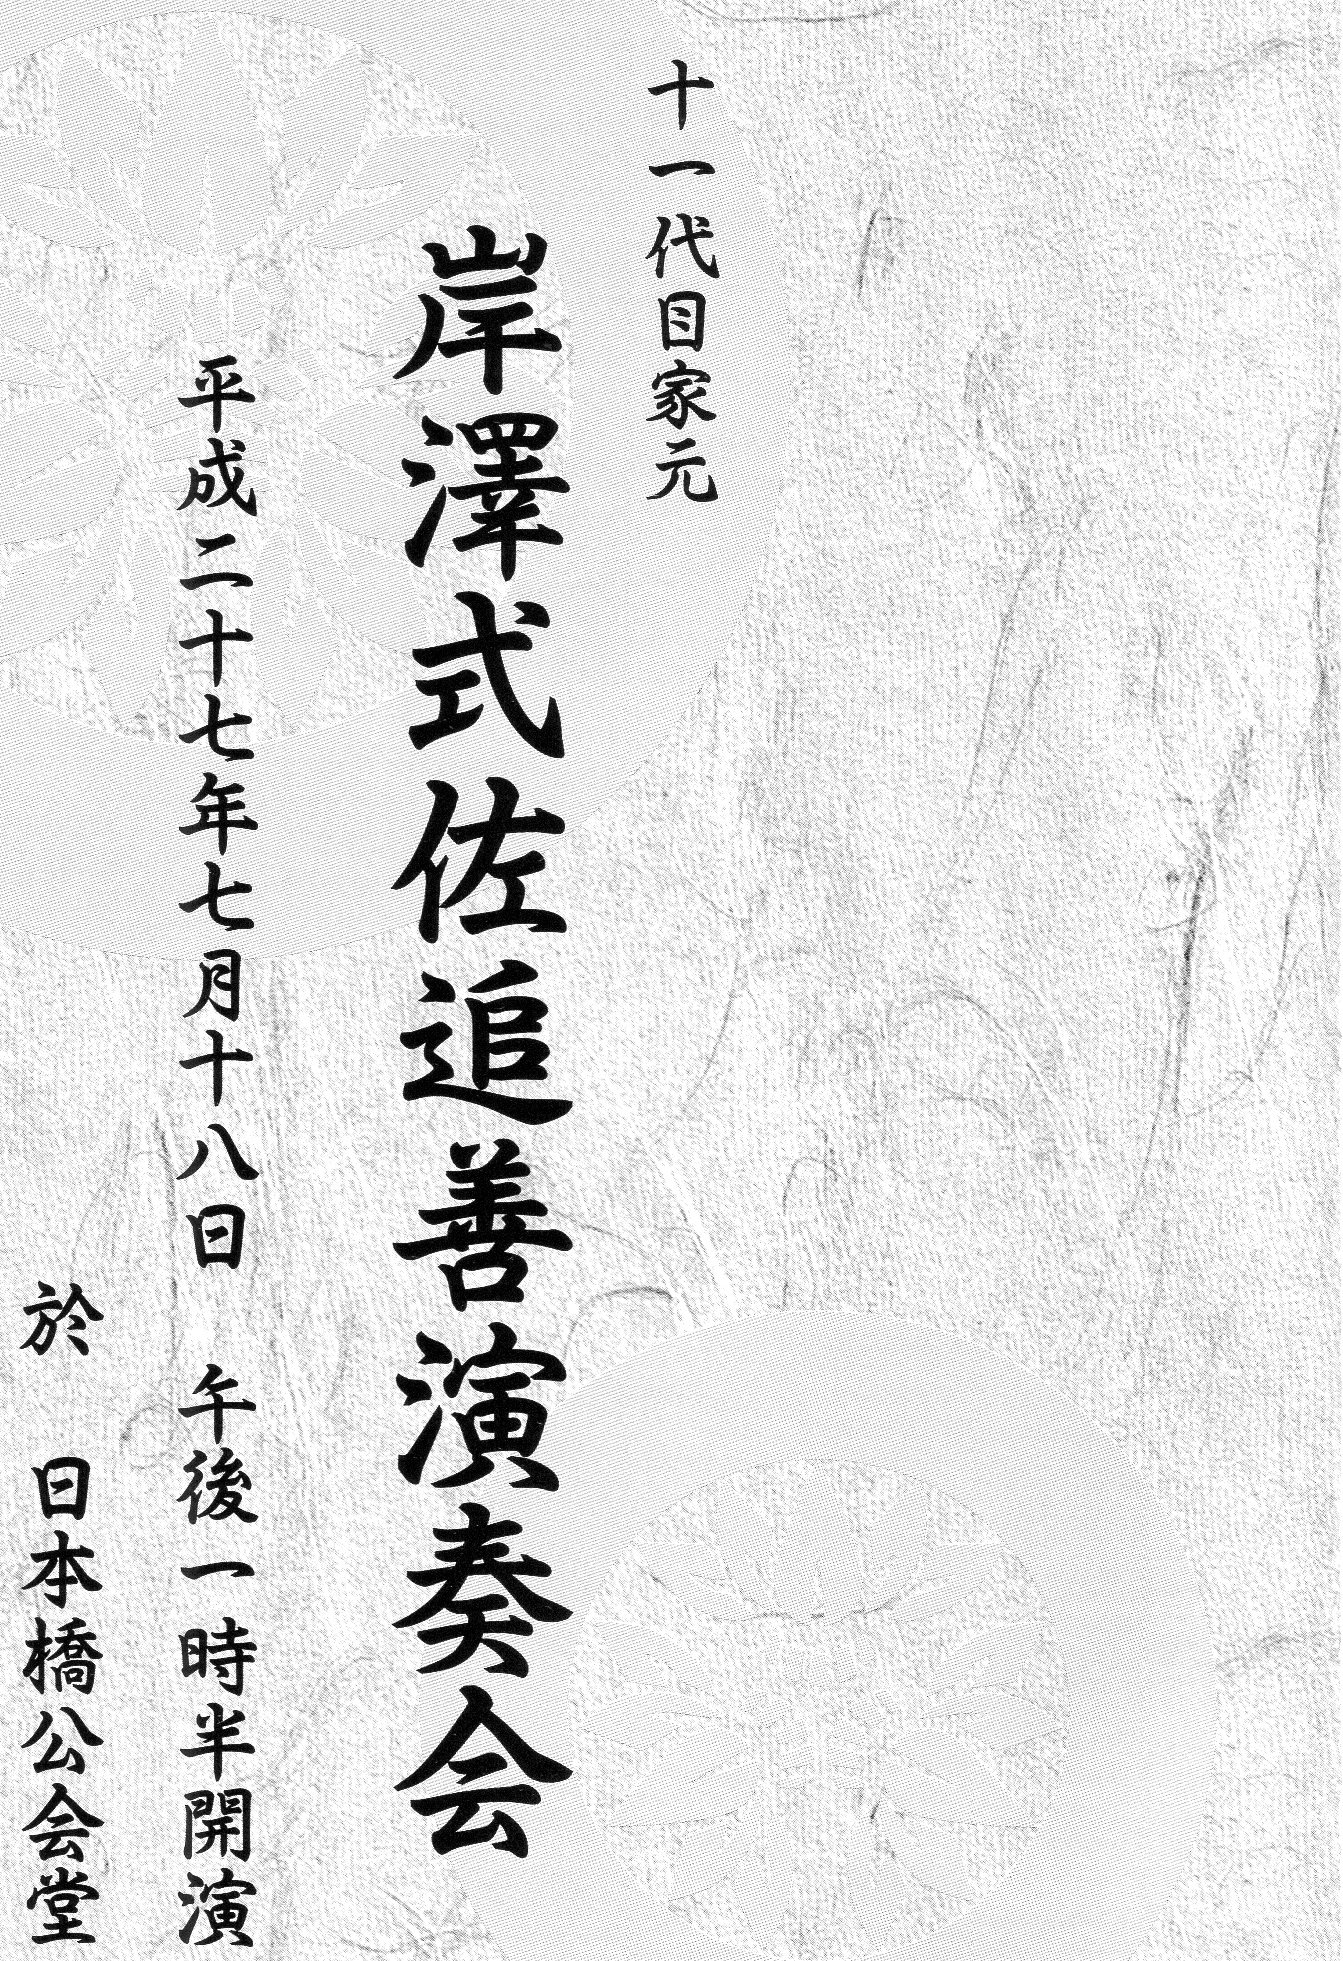 十一代目家元
岸澤式佐追善演奏会
平成二十七年七月十八日　午後一時半開演
於　日本橋公会堂